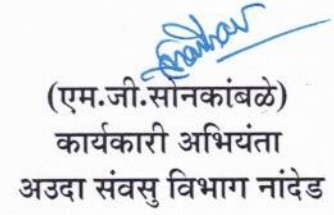 (एम.जी.सोनकांबळे)
कार्यकारी अभियंता
अउदा संवसु विभाग नांदेड